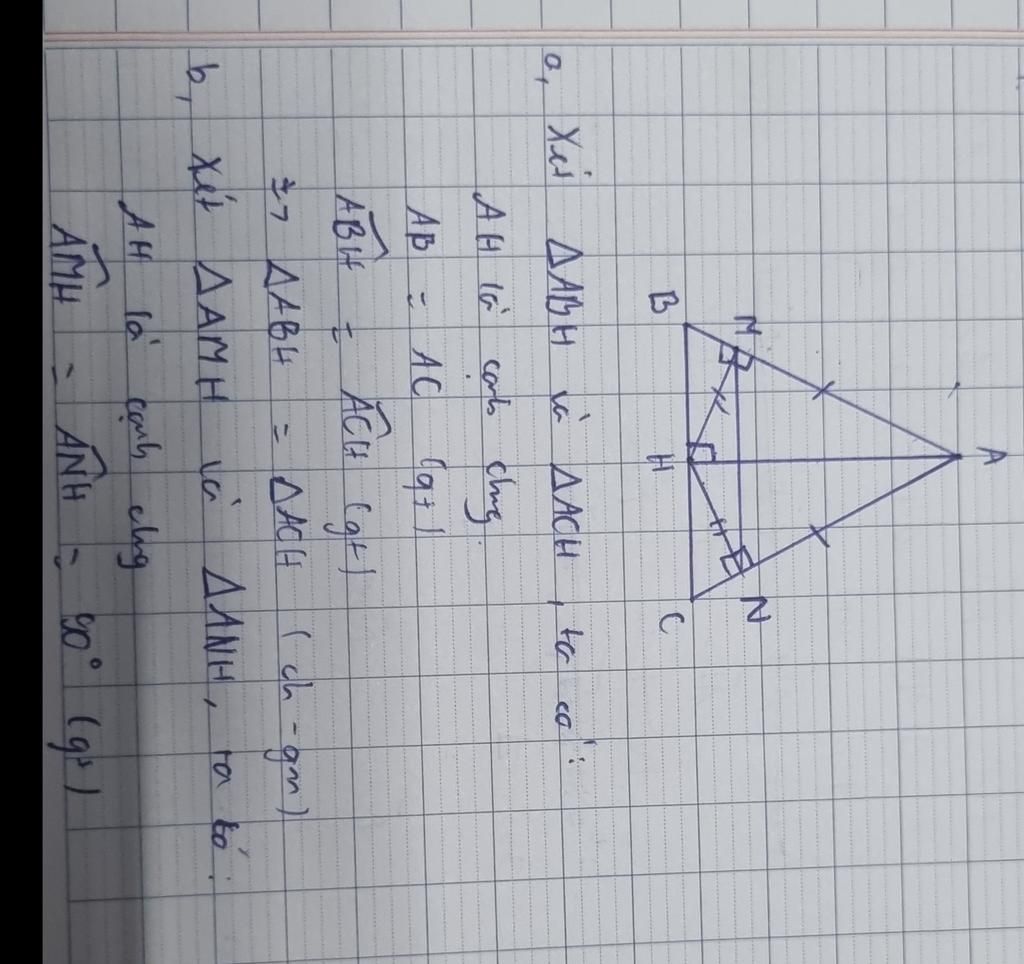 A
M
N
B
H
C
a, Xét ΔABH và ΔACH, ta có:
AH là cạnh chung
AB = AC (gt)
ABH = ACH (gt)
=> ΔABH = ΔACH (ch - gn)
b, Xét ΔAMH và ΔANH, ta có:
AH là cạnh chung
AMH = ANH = 90° (gt)